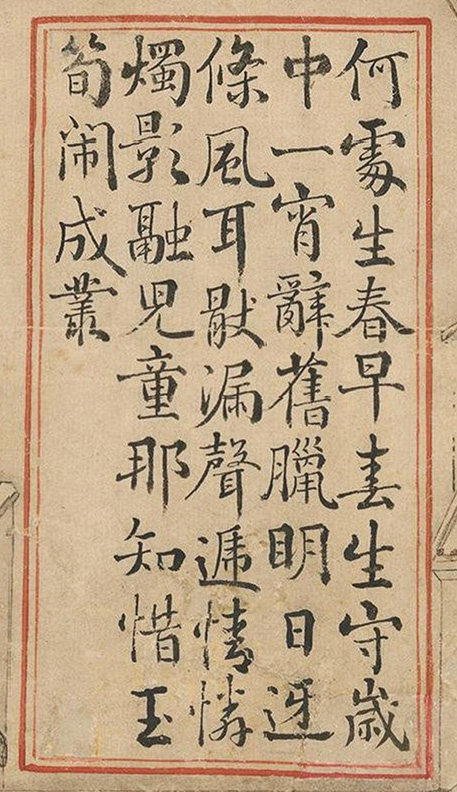 何處生春早春生守歲
中一宵辭舊臘明日迓
條風耳猒漏聲遞情憐
燭影融兒童那知惜玉
筍闹成叢